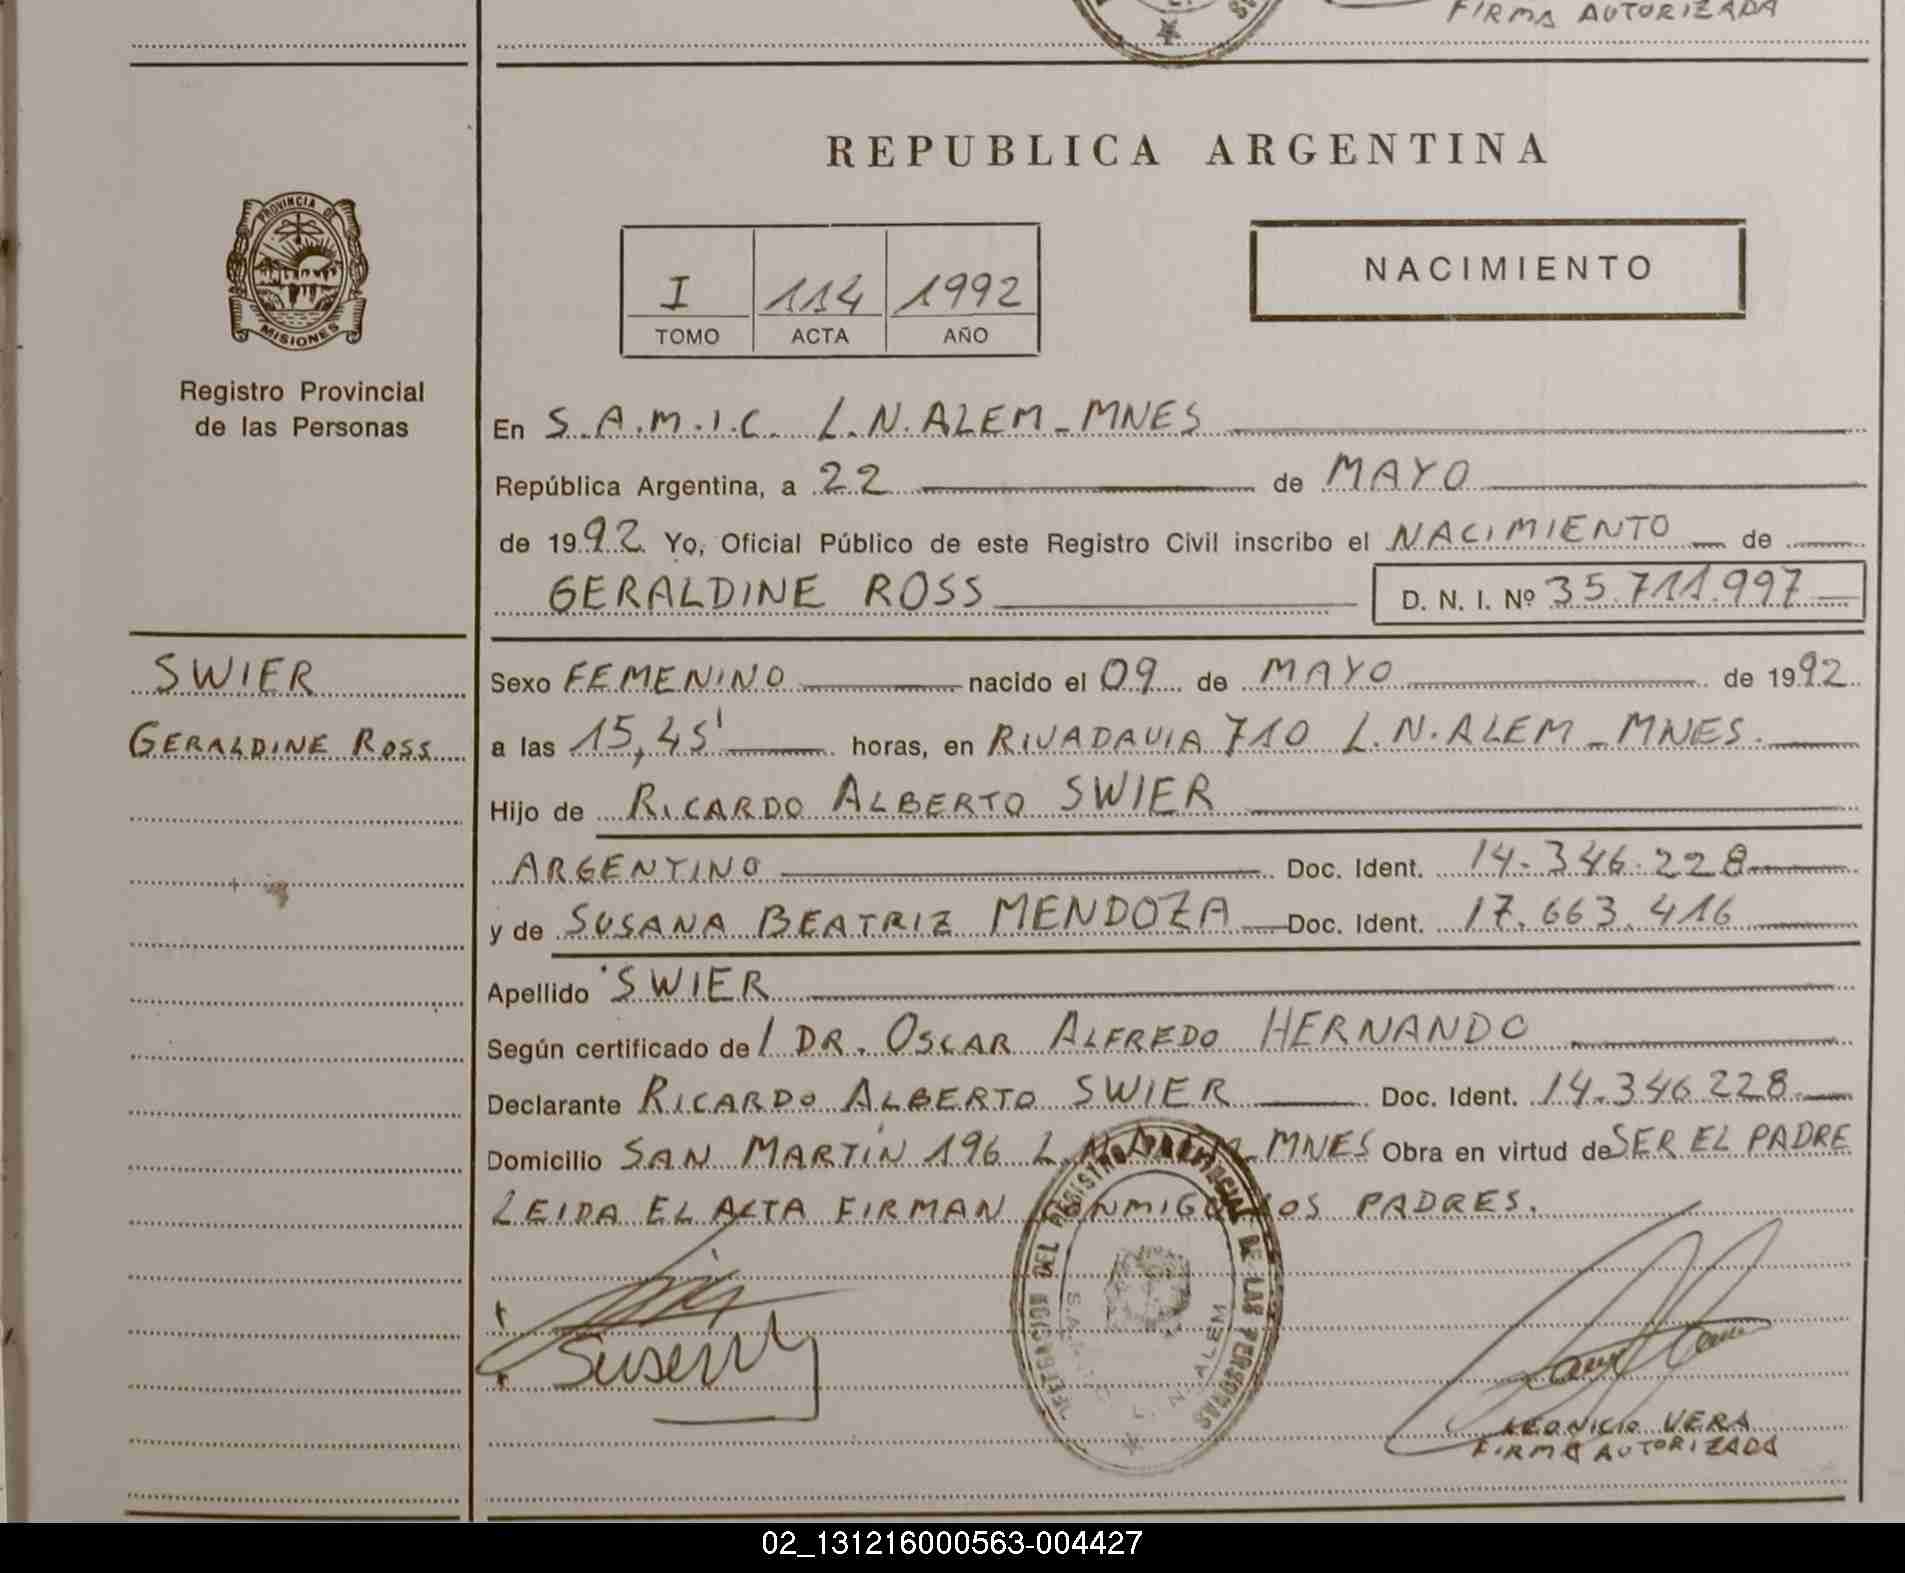 FIRMA AUTORIZADA
REPUBLICA ARGENTINA
PROVINCIA DE
MISIONES
Registro Provincial
de las Personas
I 114 1992
TOMO ACTA AÑO
NACIMIENTO
En S.A.M.I.C. L.N.ALEM-MNES
República Argentina, a 22 de MAYO
de 1992 Yo, Oficial Público de este Registro Civil inscribo el NACIMIENTO de
GERALDINE ROSS D. N. I. Nº 35.711.997
SWIER
GERALDINE ROSS
Sexo FEMENINO nacido el 09 de MAYO de 1992
a las 15,45' horas, en RIVADAVIA 710 L.N.ALEM-MNES.
Hijo de RICARDO ALBERTO SWIER
ARGENTINO Doc. Ident. 14.346.228
y de SUSANA BEATRIZ MENDOZA Doc. Ident. 17.663.416
Apellido SWIER
Según certificado de/ DR. OSCAR ALFREDO HERNANDO
Declarante RICARDO ALBERTO SWIER Doc. Ident. 14.346.228
Domicilio SAN MARTÍN 196 L.N.ALEM-MNES Obra en virtud de SER EL PADRE
LEIDA EL ACTA FIRMAN CONMIGO LOS PADRES.
DELEGACION DEL REGISTRO PROVINCIAL DE LAS PERSONAS
S.A.M.I.C.
L. N. ALEM
LEONICIO VERA
FIRMA AUTORIZADA
02_131216000563-004427